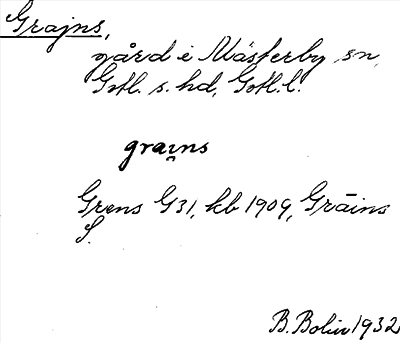 Grajns,
gård i Mästerby sn,
Gotl. s. hd, Gotl. l.
grai̯ns
Grens G31, kb 1909, Grāins
S.
B. Bolin 1932